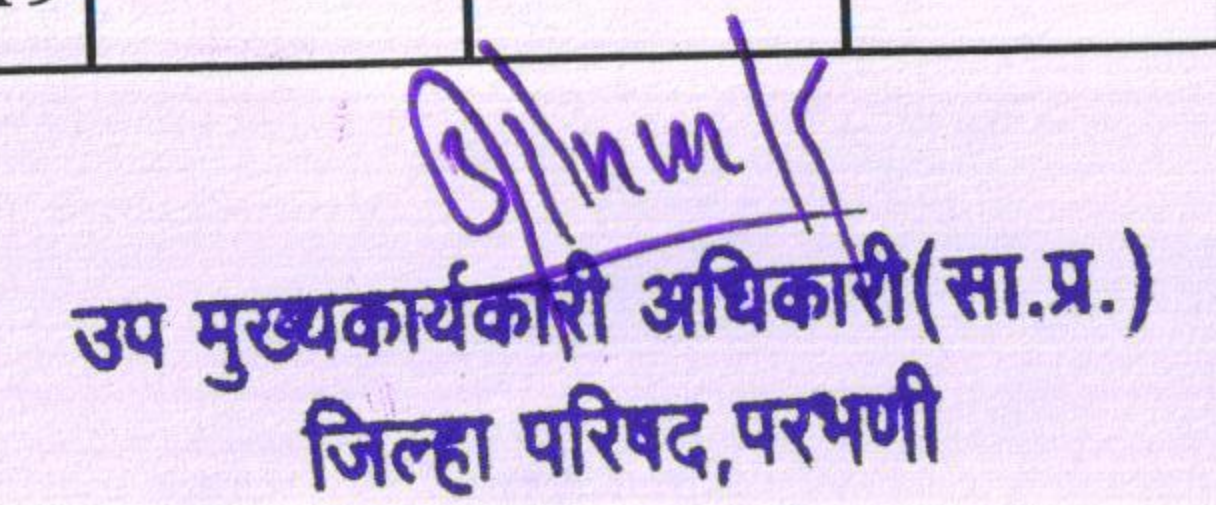 उप मुख्यकार्यकारी अधिकारी(सा.प्र.)
जिल्हा परिषद,परभणी